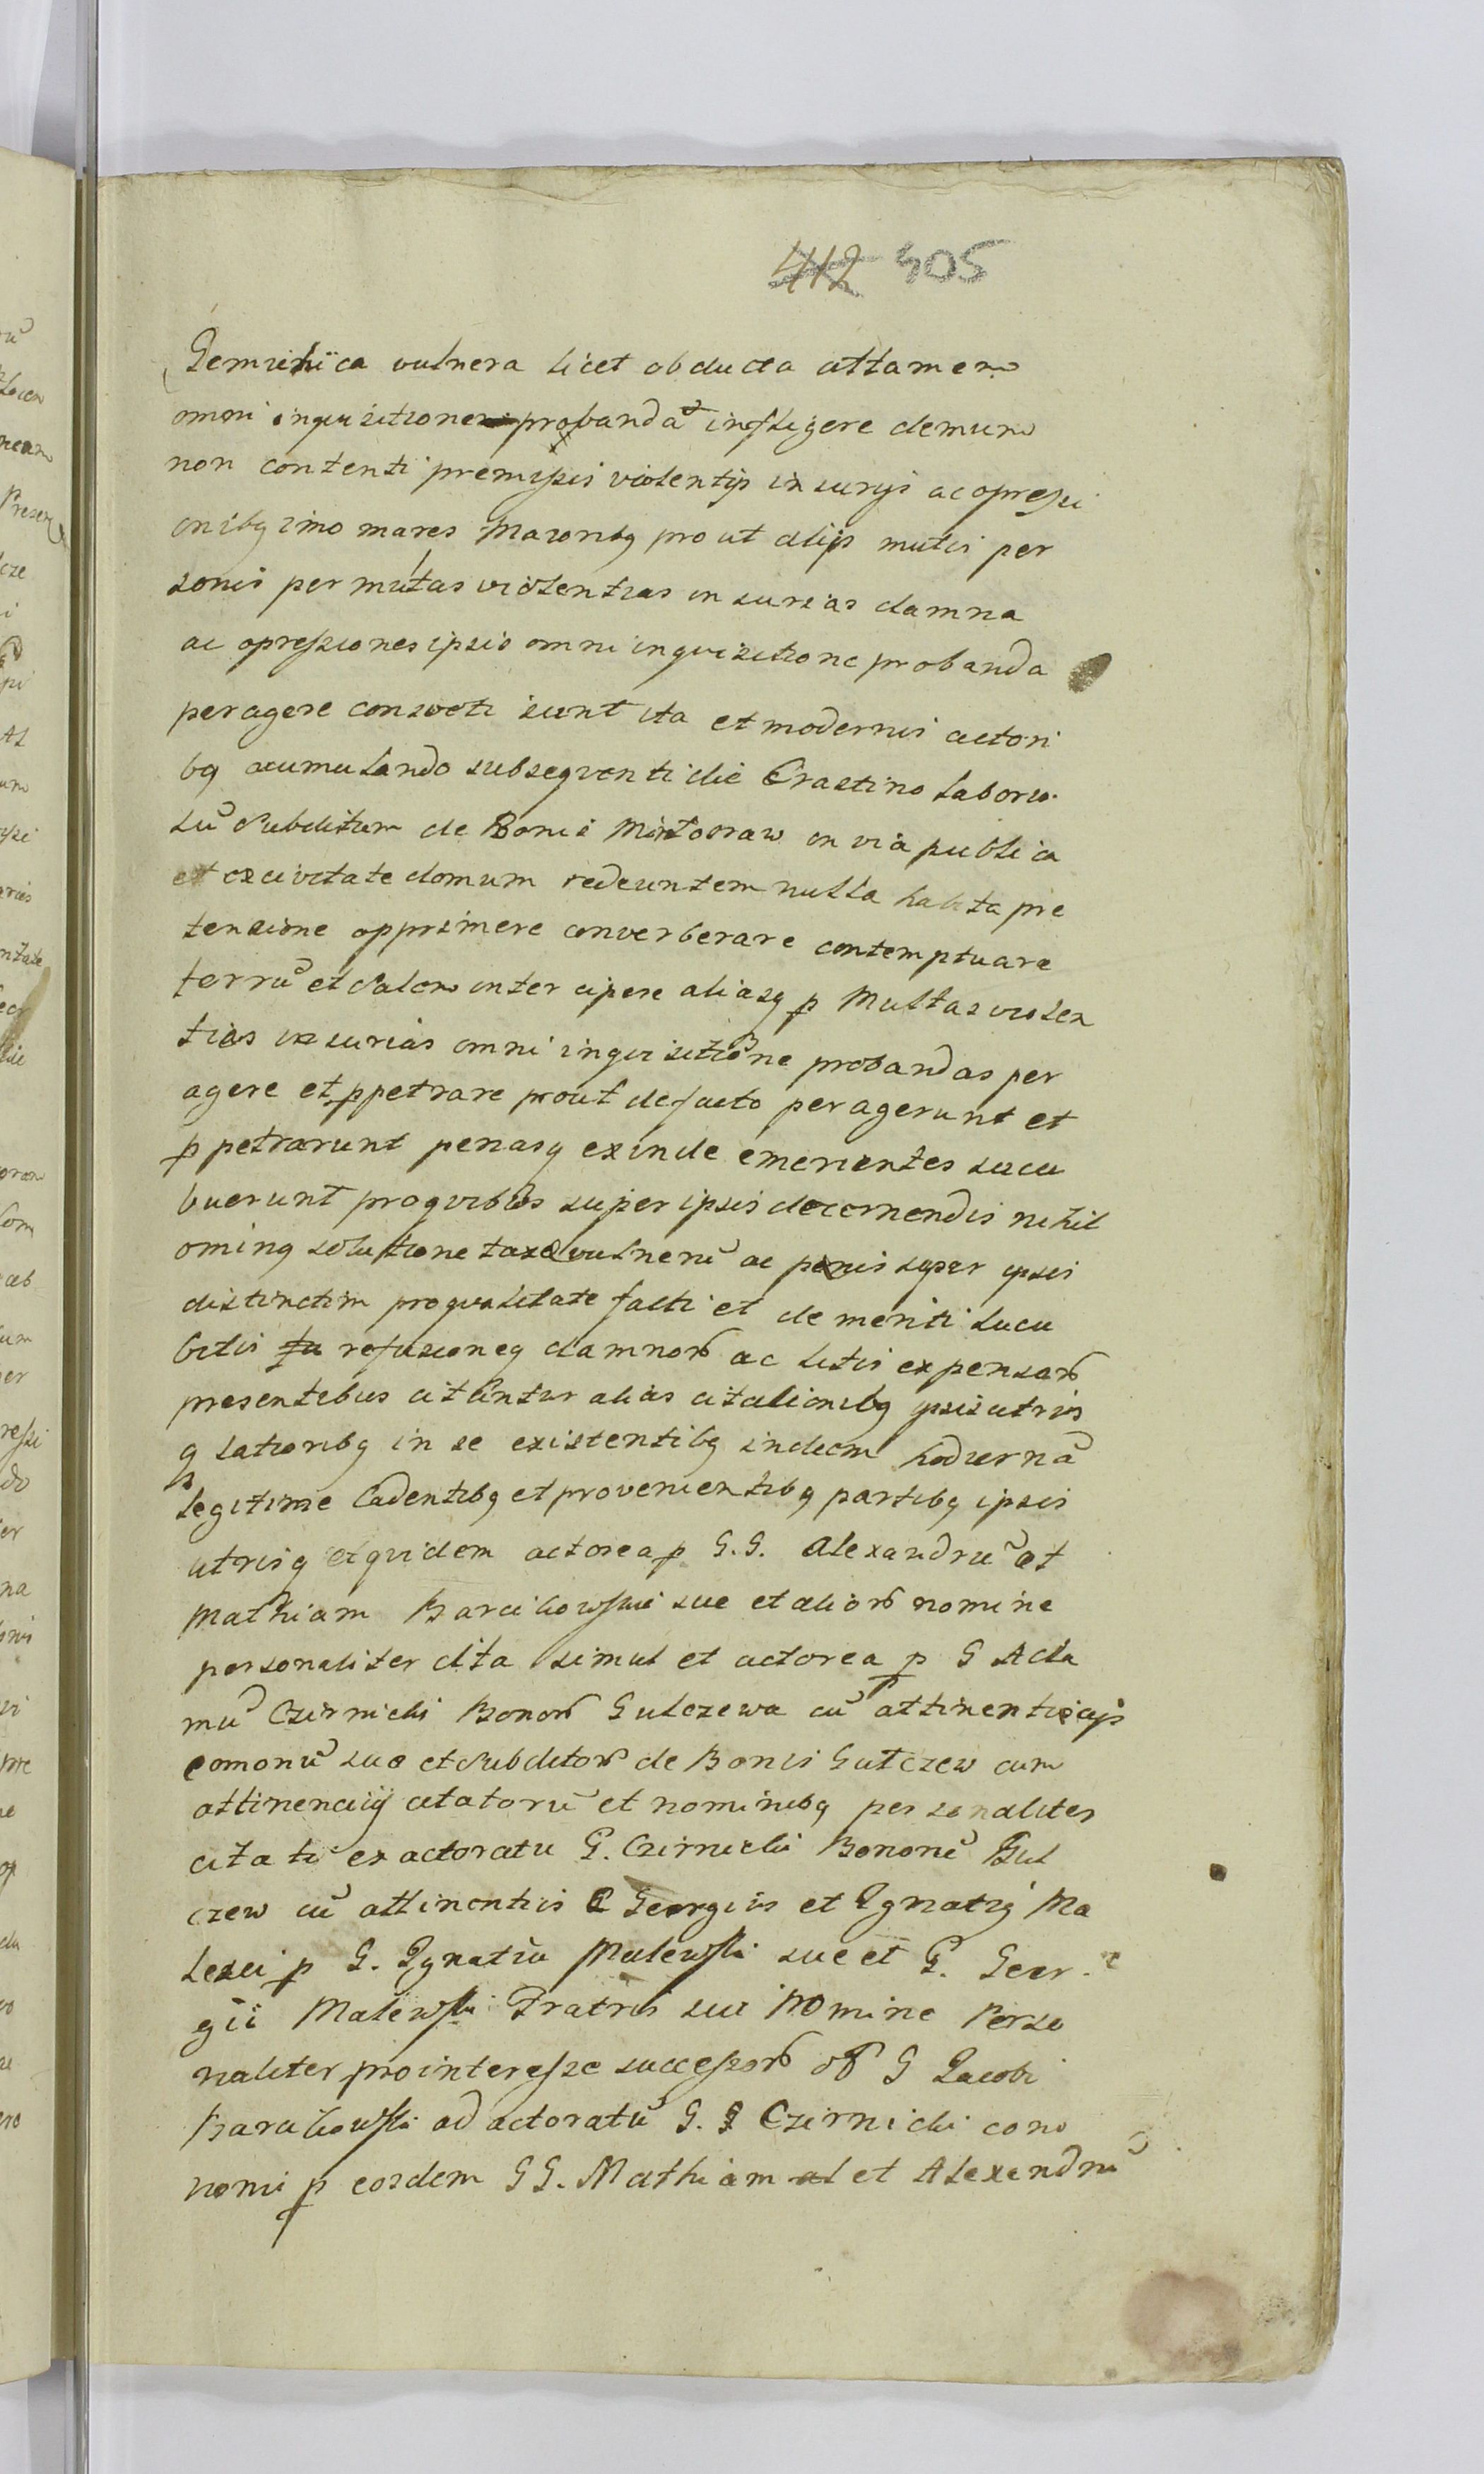 412 405
vulnera licet obducta attamen
omni inquisitione probandā infligere demum
non contenti premissis violentijs iniurijs ac opressi
onibq imo mares Maioribq pro ut alijs multis per
sonis per multas violentias iniurias damna
ac opressiones ipsis omni inquisitione probanda
peragere consveti sunt ita et modernis actori
bq acumulando subseqventi die Crastino laborio
sū Subditum de Bonis in via publica
et ex civitate domum redeuntem nulla habita pre
tensione opprimere converberare contemptuare
ferrū et Salem intercipere aliasq p Multas violen
tias iniurias omni inquisitione probandas per
agere et ppetrare prout defacto peragerunt et
ppetrarunt penasq exinde emerientes sucu
buerunt pro qvibus super ipsis decernendis nihil
ominq solutione taxe vulnerū ac penis super ipsis
distinctim pro qvalitate facti et demeriti sucu
bitis refusioneq damnor ac litis expensar
presentibus citantur alias citationibq ipsis utris
q lationibq in se existentibq indiem hodiernā
legitime Cadentibq et provenientibq partibq ipsis
utrisq et qvidem actorea p G. G. Alexandrū et
Mathiam Barcikowskie sue et alior nomine
personaliter cita simul et actorea p G Ada
mū Czirnicki Bonor Gulczewa cū attinentiis
comonū suo et Subditor de Bonis Gulczew cum
attinencijs citatorū et nominibq personaliter
citati ex actoratu G. Czirnicki Bononū Gul
czew cū attinentiis Georgius et Ignatij Ma
lesci p G. Ignatiū Malewski sue et G. Geor
gii Malewski Fratris sui Nomine Perso
naliter pro interesse successor G Jacobi
Barcikowski ad actoratū G. Czirnicki cono
nomi p eosdem GG. Mathiam et Alexandrū